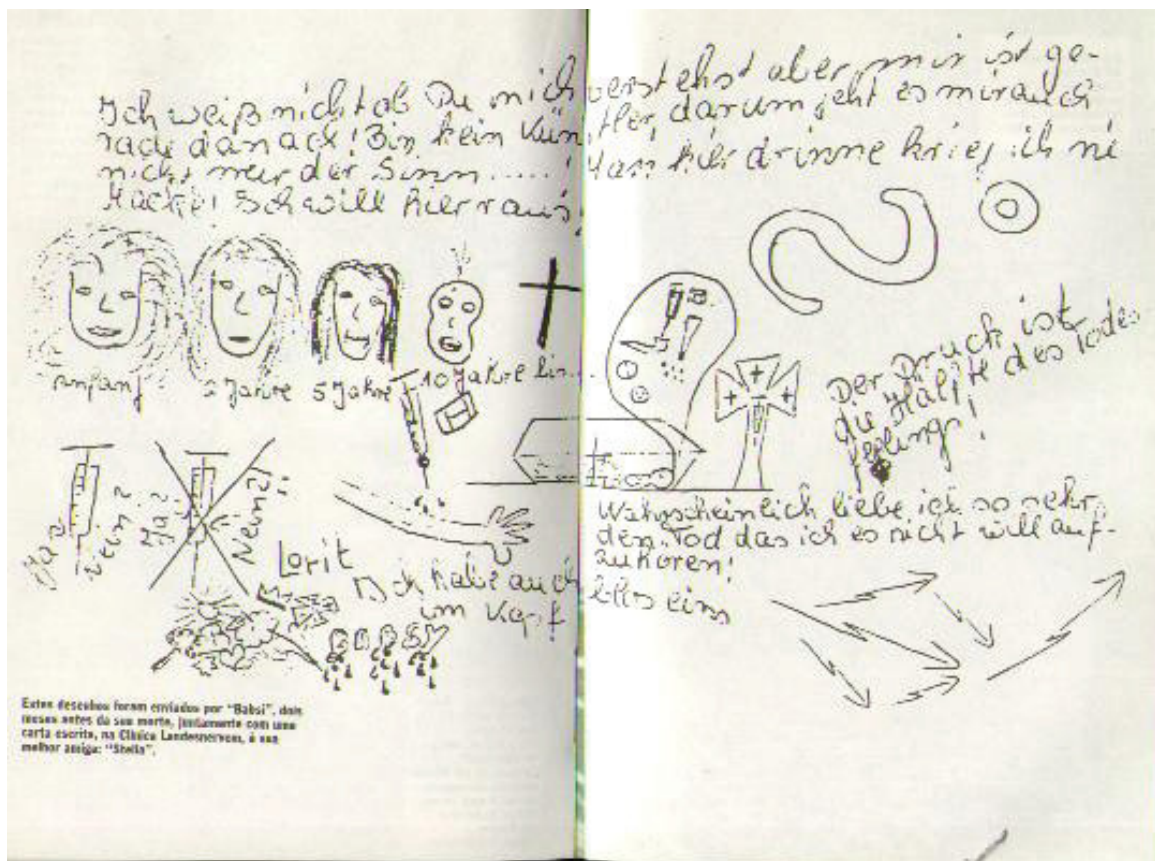 Ich weiß nicht ob Du mich verstehst aber mir ist ge-
rade danach! Bin kein Künstler, darum geht es mir auch
nicht meer der Sinn.....! Man hier drinne krieg ich ne
Macke! Ich will hier raus!
Anfang
2 Jahre
5 Jahre
10 Jahre
Ja?
Nein?
Ja?
Nein?!
Ich habe auch
im Kopf
blos eins
Der Druck ist
die Hälfte des Todes
feelings!
Wahrscheinlich liebe ich so sehr
den Tod das ich es nicht will auf-
zuhören!
Estes desenhos foram enviados por "Babsi", dois
meses antes da sua morte, juntamente com uma
carta escrita, na Clínica Landesnerven, à sua
melhor amiga: "Stella".